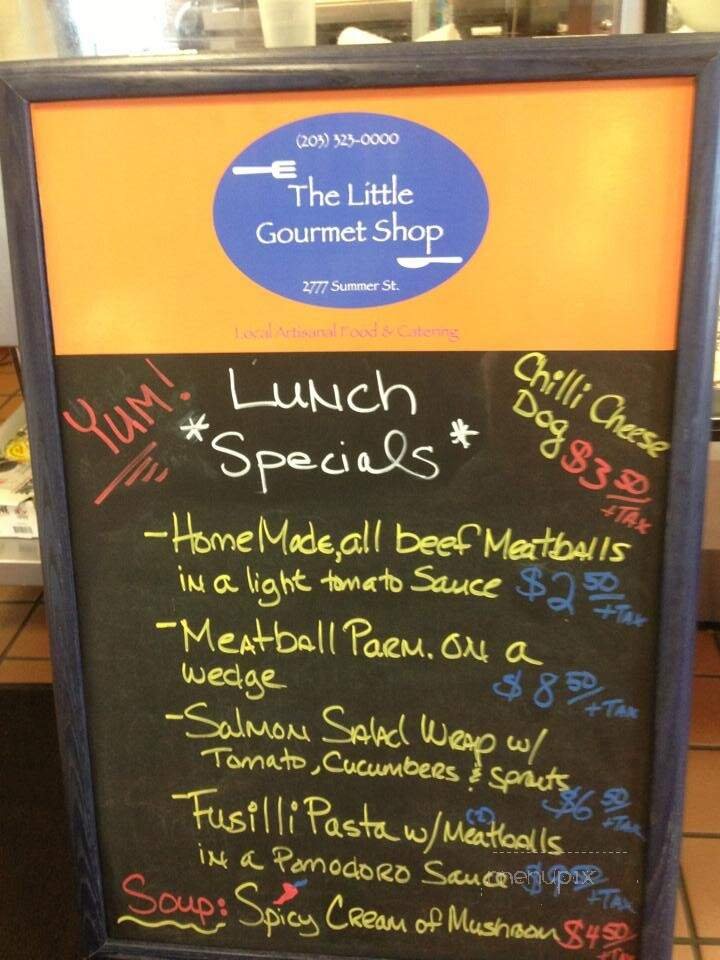 (203) 323-0000
The Little
Gourmet Shop
2777 Summer St.
Local Artisanal Food & Catering
YUM!
Lunch
*Specials*
Chilli Cheese
Dog $3.50
+TAX
- Home Made, all beef Meatballs
in a light tomato Sauce $2.50
+TAX
- Meatball Parm. on a
wedge $8.50
+TAX
- Salmon Salad Wrap w/
Tomato, Cucumbers & Sprouts
$6.50
+TAX
- Fusilli Pasta w/ (2) Meatballs
in a Pomodoro Sauce
+TAX
menupix
Soup: Spicy Cream of Mushroom $4.50